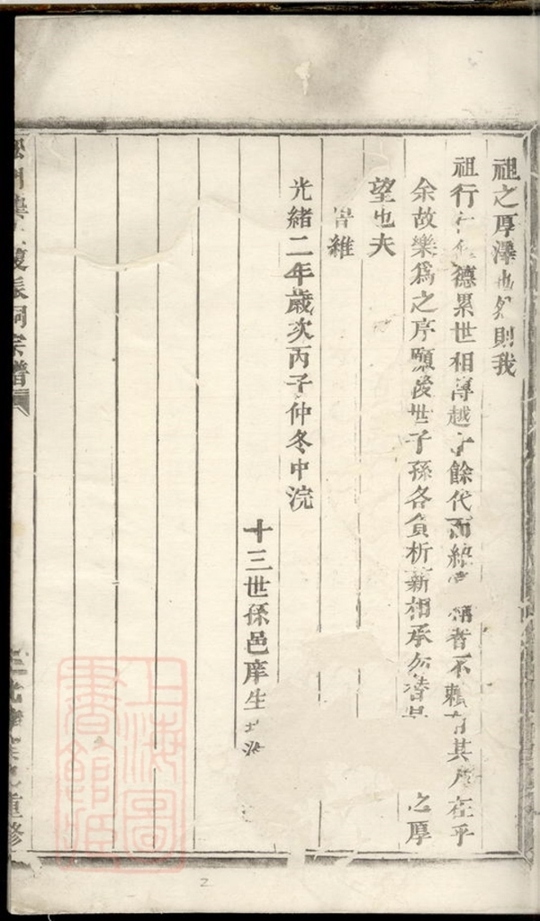 祖之厚澤也然則我
祖行德累世相傳越十餘代而者不賴有其人在乎
余故樂爲之序願後世子孫各負析薪相承勿替之厚
望也夫
皆維
光緒二年歲次丙子仲冬中浣
十三世孫邑庠生
復振祠宗譜
重修
上海圖書館藏
2